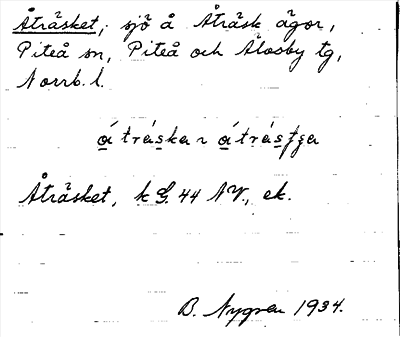 Åträsket, sjö å Åträsk ägor,
Piteå sn, Piteå och Älvsby tg,
Norrb. l.
Åträsket, k G. 44 NV., ek.
B. Nygren 1934.